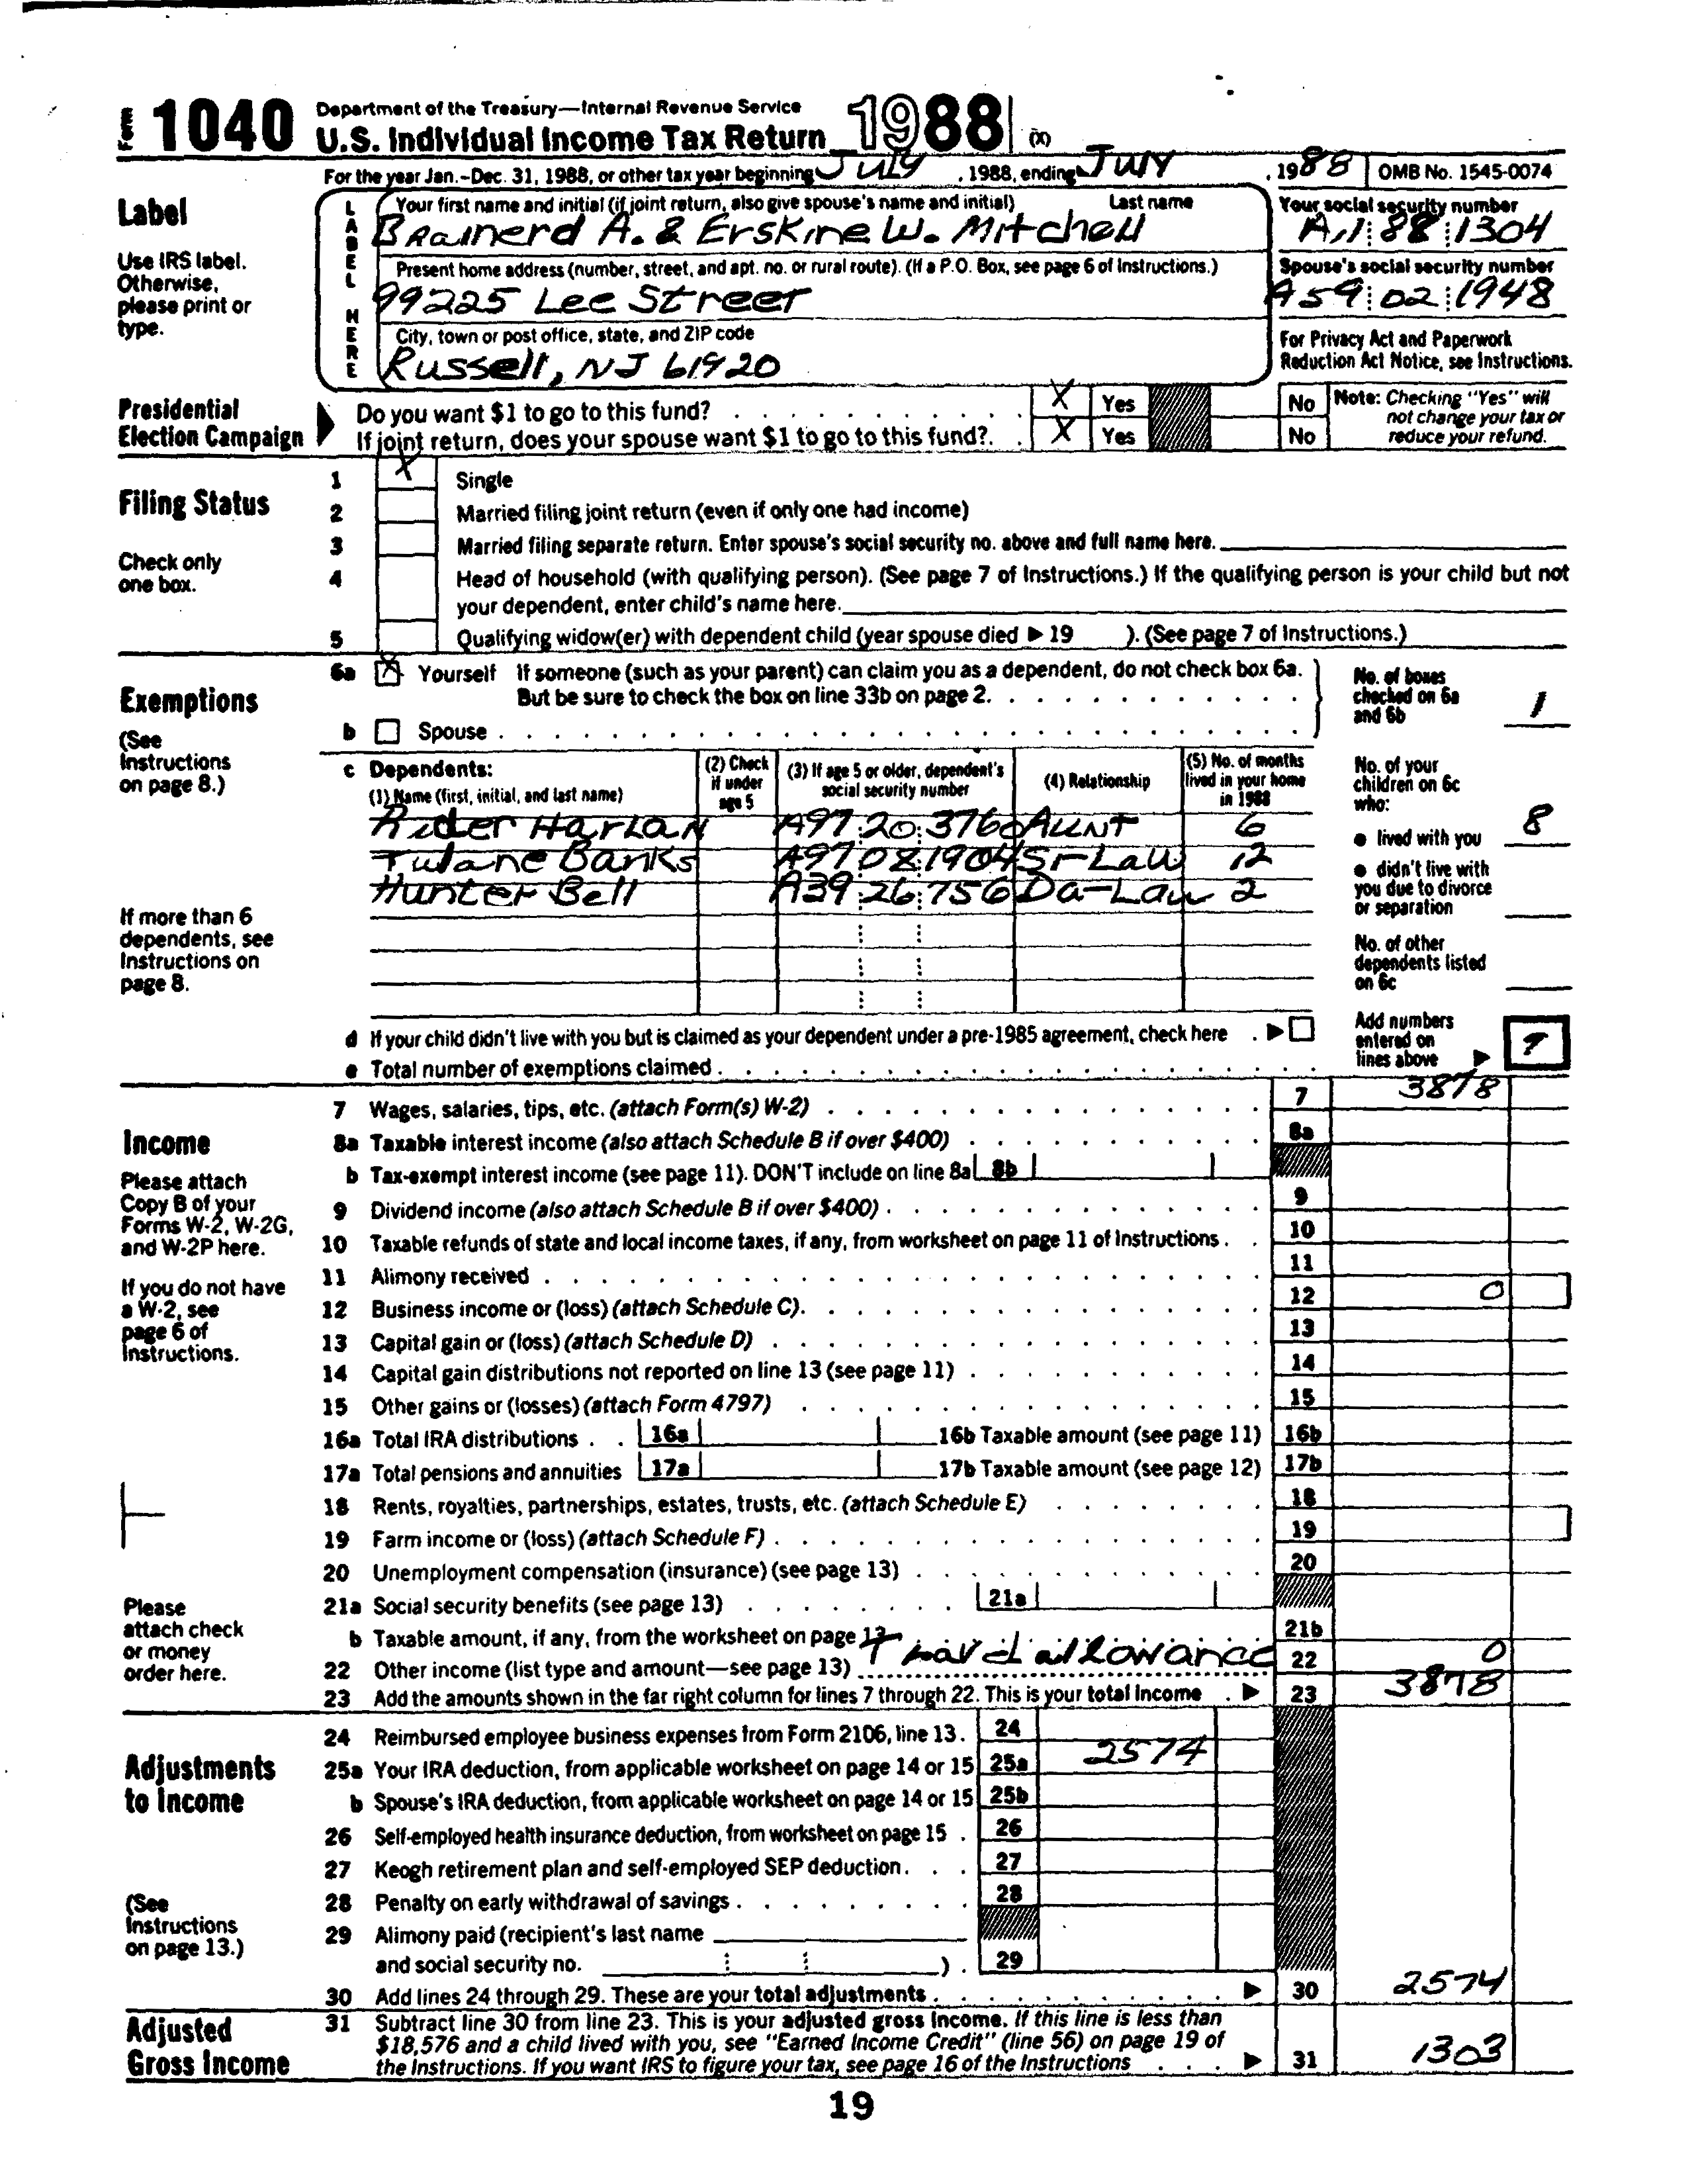 Form 1040 Department of the Treasury—Internal Revenue Service
U.S. Individual Income Tax Return 1988 (X)
For the year Jan.-Dec. 31, 1988, or other tax year beginning July , 1988, ending July , 1988 OMB No. 1545-0074
Label
Use IRS label. Otherwise, please print or type.
LABEL HERE
Your first name and initial (if joint return, also give spouse's name and initial) Last name
Brainerd A. & Erskine W. Mitchell
Your social security number
A,1 88 1304
Present home address (number, street, and apt. no. or rural route). (If a P.O. Box, see page 6 of Instructions.)
99225 Lee Street
Spouse's social security number
A59 02 1948
City, town or post office, state, and ZIP code
Russell, NJ 61920
For Privacy Act and Paperwork Reduction Act Notice, see Instructions.
Presidential Election Campaign
Do you want $1 to go to this fund? X Yes No
If joint return, does your spouse want $1 to go to this fund? X Yes No
Note: Checking "Yes" will not change your tax or reduce your refund.
Filing Status
Check only one box.
1 X Single
2 Married filing joint return (even if only one had income)
3 Married filing separate return. Enter spouse's social security no. above and full name here.
4 Head of household (with qualifying person). (See page 7 of Instructions.) If the qualifying person is your child but not
your dependent, enter child's name here.
5 Qualifying widow(er) with dependent child (year spouse died ▶ 19 ). (See page 7 of Instructions.)
Exemptions
(See Instructions on page 8.)
6a X Yourself If someone (such as your parent) can claim you as a dependent, do not check box 6a.
But be sure to check the box on line 33b on page 2.
b Spouse
No. of boxes checked on 6a and 6b 1
c Dependents:
(1) Name (first, initial, and last name) (2) Check if under age 5 (3) If age 5 or older, dependent's social security number (4) Relationship (5) No. of months lived in your home in 1988
Rider Harlan A97 20 3760 Aunt 6
Tulane Banks A97 08 1904 Sr-Law 12
Hunter Bell A39 26 756 Da-Law 2
If more than 6 dependents, see Instructions on page 8.
No. of your children on 6c who:
● lived with you 8
● didn't live with you due to divorce or separation
No. of other dependents listed on 6c
d If your child didn't live with you but is claimed as your dependent under a pre-1985 agreement, check here ▶
e Total number of exemptions claimed
Add numbers entered on lines above ▶ 9
Income
Please attach Copy B of your Forms W-2, W-2G, and W-2P here.
If you do not have a W-2, see page 6 of Instructions.
7 Wages, salaries, tips, etc. (attach Form(s) W-2) 7 3878
8a Taxable interest income (also attach Schedule B if over $400) 8a
b Tax-exempt interest income (see page 11). DON'T include on line 8a 8b
9 Dividend income (also attach Schedule B if over $400) 9
10 Taxable refunds of state and local income taxes, if any, from worksheet on page 11 of Instructions 10
11 Alimony received 11
12 Business income or (loss) (attach Schedule C) 12 0
13 Capital gain or (loss) (attach Schedule D) 13
14 Capital gain distributions not reported on line 13 (see page 11) 14
15 Other gains or (losses) (attach Form 4797) 15
16a Total IRA distributions 16a 16b Taxable amount (see page 11) 16b
17a Total pensions and annuities 17a 17b Taxable amount (see page 12) 17b
18 Rents, royalties, partnerships, estates, trusts, etc. (attach Schedule E) 18
19 Farm income or (loss) (attach Schedule F) 19
20 Unemployment compensation (insurance) (see page 13) 20
21a Social security benefits (see page 13) 21a
b Taxable amount, if any, from the worksheet on page 13 21b
22 Other income (list type and amount—see page 13) Travel allowance 22 0
23 Add the amounts shown in the far right column for lines 7 through 22. This is your total income ▶ 23 3878
Please attach check or money order here.
Adjustments to Income
(See Instructions on page 13.)
24 Reimbursed employee business expenses from Form 2106, line 13. 24
25a Your IRA deduction, from applicable worksheet on page 14 or 15 25a 2574
b Spouse's IRA deduction, from applicable worksheet on page 14 or 15 25b
26 Self-employed health insurance deduction, from worksheet on page 15 26
27 Keogh retirement plan and self-employed SEP deduction 27
28 Penalty on early withdrawal of savings 28
29 Alimony paid (recipient's last name
and social security no. ) 29
30 Add lines 24 through 29. These are your total adjustments ▶ 30 2574
Adjusted Gross Income
31 Subtract line 30 from line 23. This is your adjusted gross income. If this line is less than
$18,576 and a child lived with you, see "Earned Income Credit" (line 56) on page 19 of
the Instructions. If you want IRS to figure your tax, see page 16 of the Instructions ▶ 31 1303
19